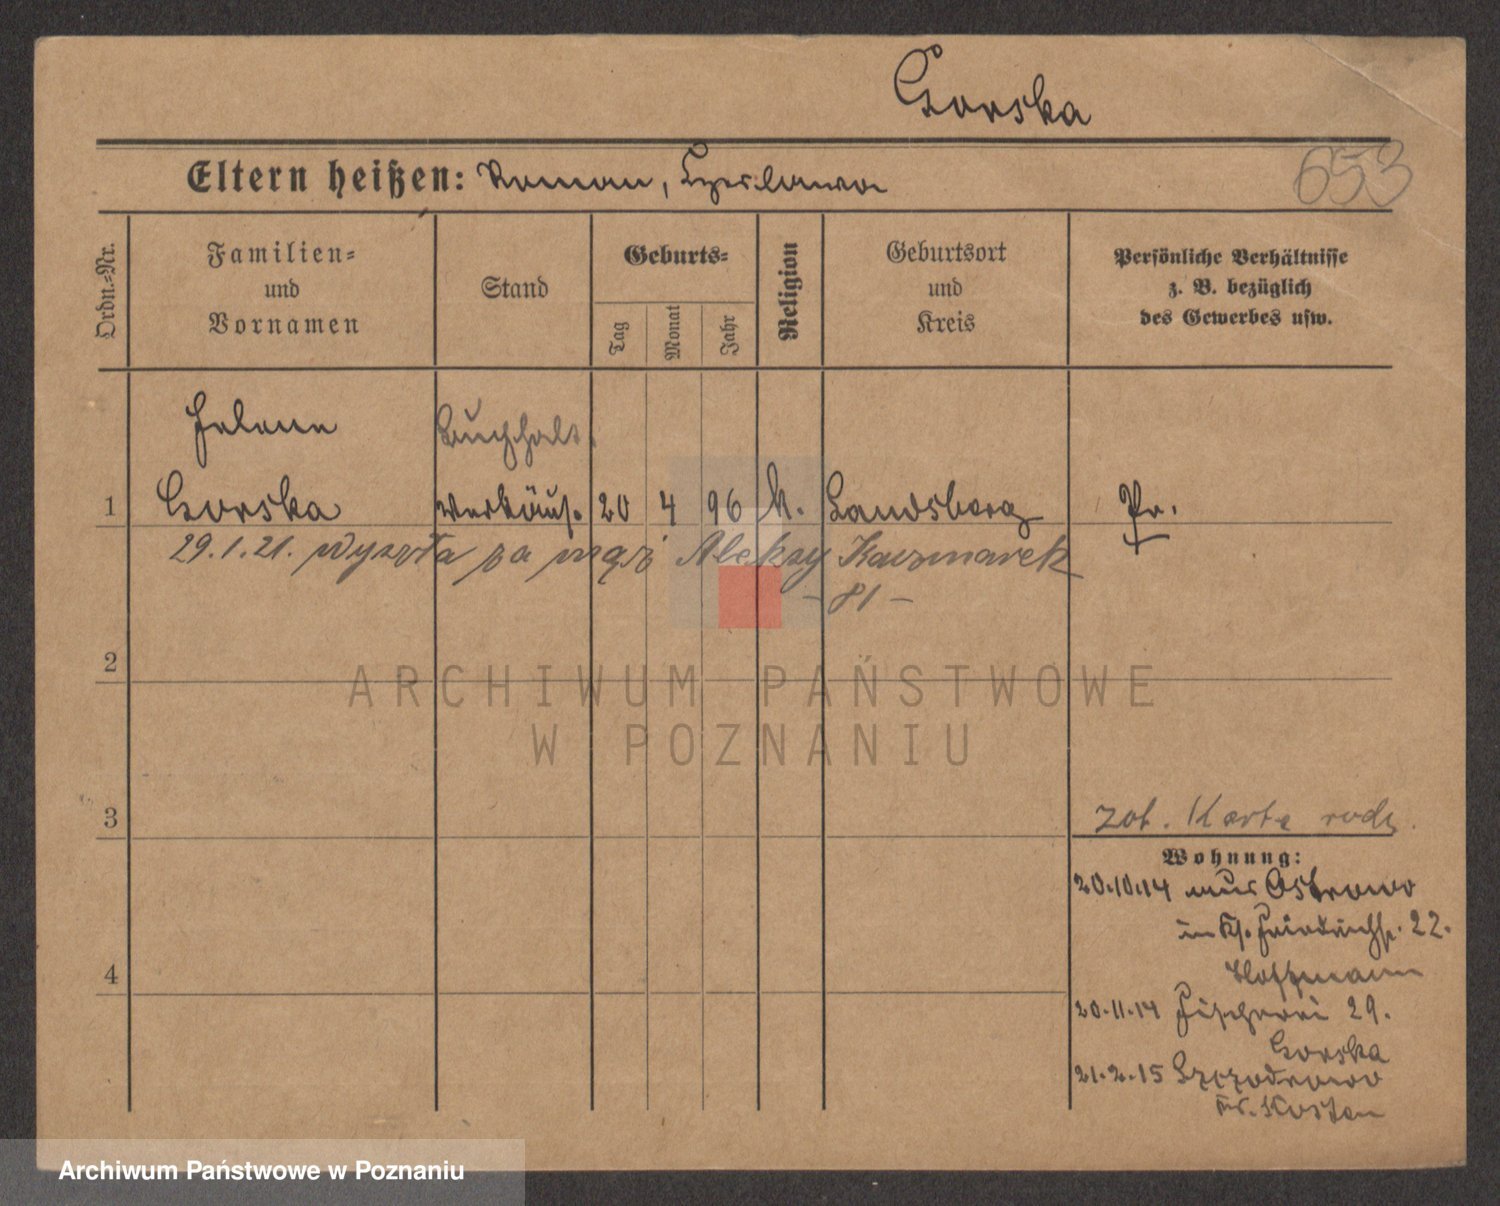 Gorska
Eltern heißen: Roman, Czeslawa
653
Ordn.=Nr.
Familien=
und
Vornamen
Stand
Geburts=
Tag
Monat
Jahr
Religion
Geburtsort
und
Kreis
Persönliche Verhältnisse
z. B. bezüglich
des Gewerbes usw.
Helene
Buchhalt.
1 Gorska Verkäuf. 20 4 96 k. Landsberg Pr.
29.1.21. wyszła za mąż Aleksy Kaczmarek
- 81 -
2
ARCHIWUM PAŃSTWOWE
W POZNANIU
3
zob. Karta rodz.
Wohnung:
20.10.14 aus Ostrowo
in Friedrichstr. 22.
Hoffmann
4
20.11.14 Fischerei 29.
Gorska
21.2.15 Szczodrowo
Kr. Kosten
Archiwum Państwowe w Poznaniu